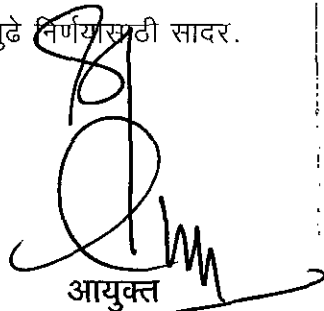 पुढे निर्णयासाठी सादर.
आयुक्त